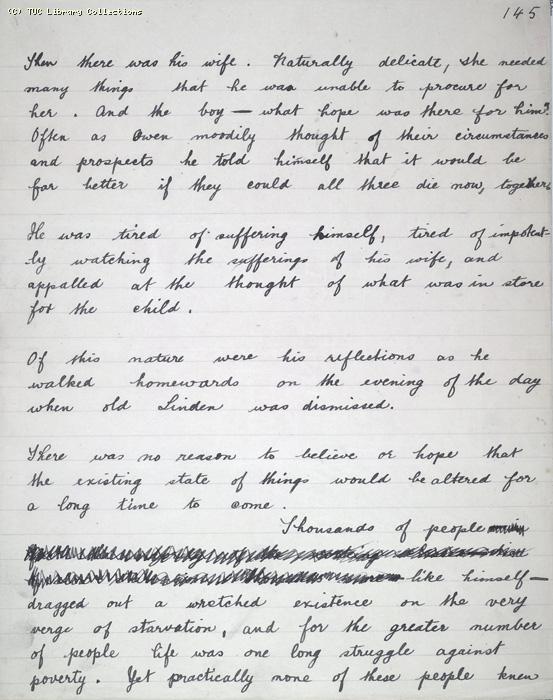 (C) TUC Library Collections
145
Then there was his wife. Naturally delicate, she needed
many things that he was unable to procure for
her. And the boy — what hope was there for him?
Often as Owen moodily thought of their circumstances
and prospects he told himself that it would be
far better if they could all three die now, together.
He was tired of suffering himself, tired of impotent-
ly watching the sufferings of his wife, and
appalled at the thought of what was in store
for the child.
Of this nature were his reflections as he
walked homewards on the evening of the day
when old Linden was dismissed.
There was no reason to believe or hope that
the existing state of things would be altered for
a long time to come.
Thousands of people
like himself —
dragged out a wretched existence on the very
verge of starvation, and for the greater number
of people life was one long struggle against
poverty. Yet practically none of these people knew